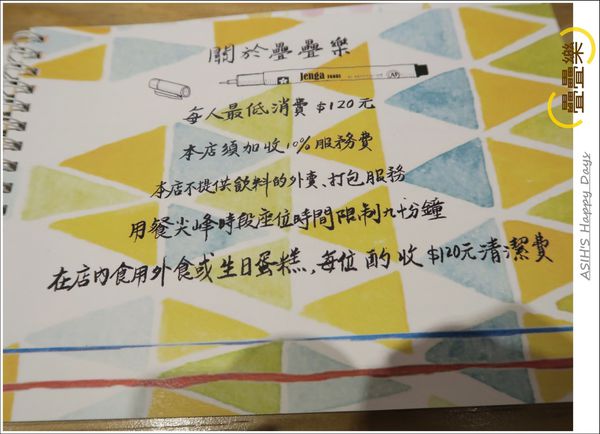 關於疊疊樂
Jenga
每人最低消費$120元
本店須加收10%服務費
本店不提供飲料的外賣、打包服務
用餐尖峰時段座位時間限制九十分鐘
在店內食用外食或生日蛋糕,每位酌收$120元清潔費
疊疊樂
ASIH'S Happy Days